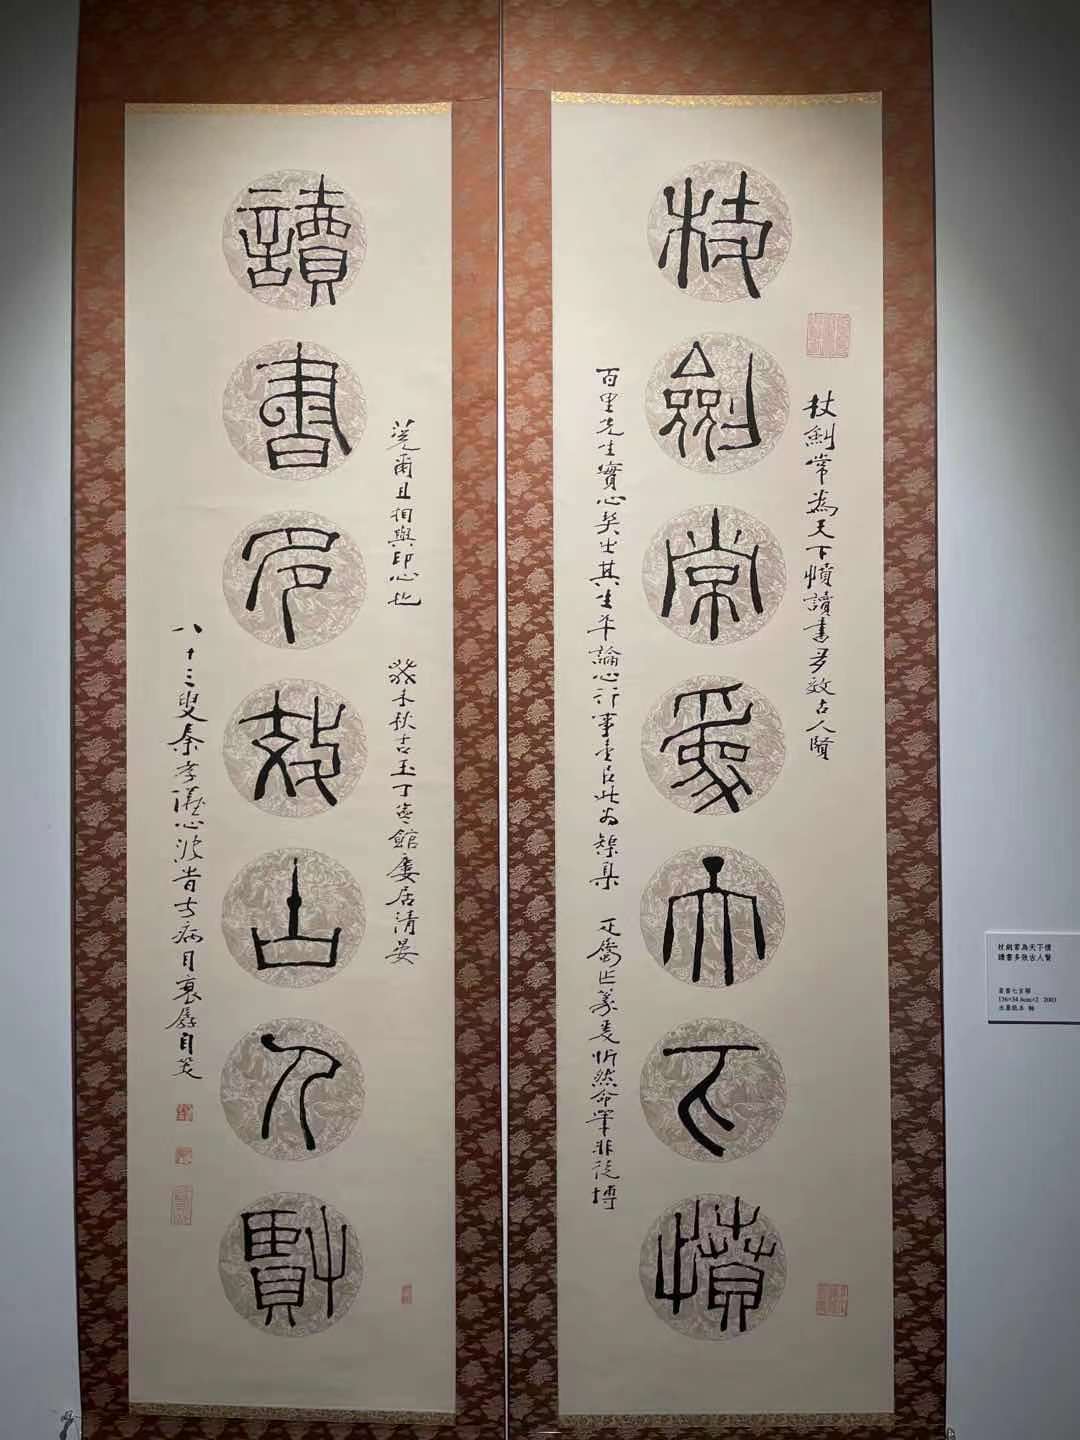 杖劍常為天下憤讀書多效古人賢
杖劍常為天下憤
百里先生實心契出其生平論心行事此為榘臬 屬作篆爰忻然命筆非徒博
莞爾且相與印心也 癸未秋吉玉丁寧館廔居清晏
讀書多效古人賢
八十三叟秦孝儀心波病目衰孱自笑
杖劍常為天下憤
讀書多效古人賢
篆書七言聯
136×34.6cm×2 2003
水墨紙本 軸